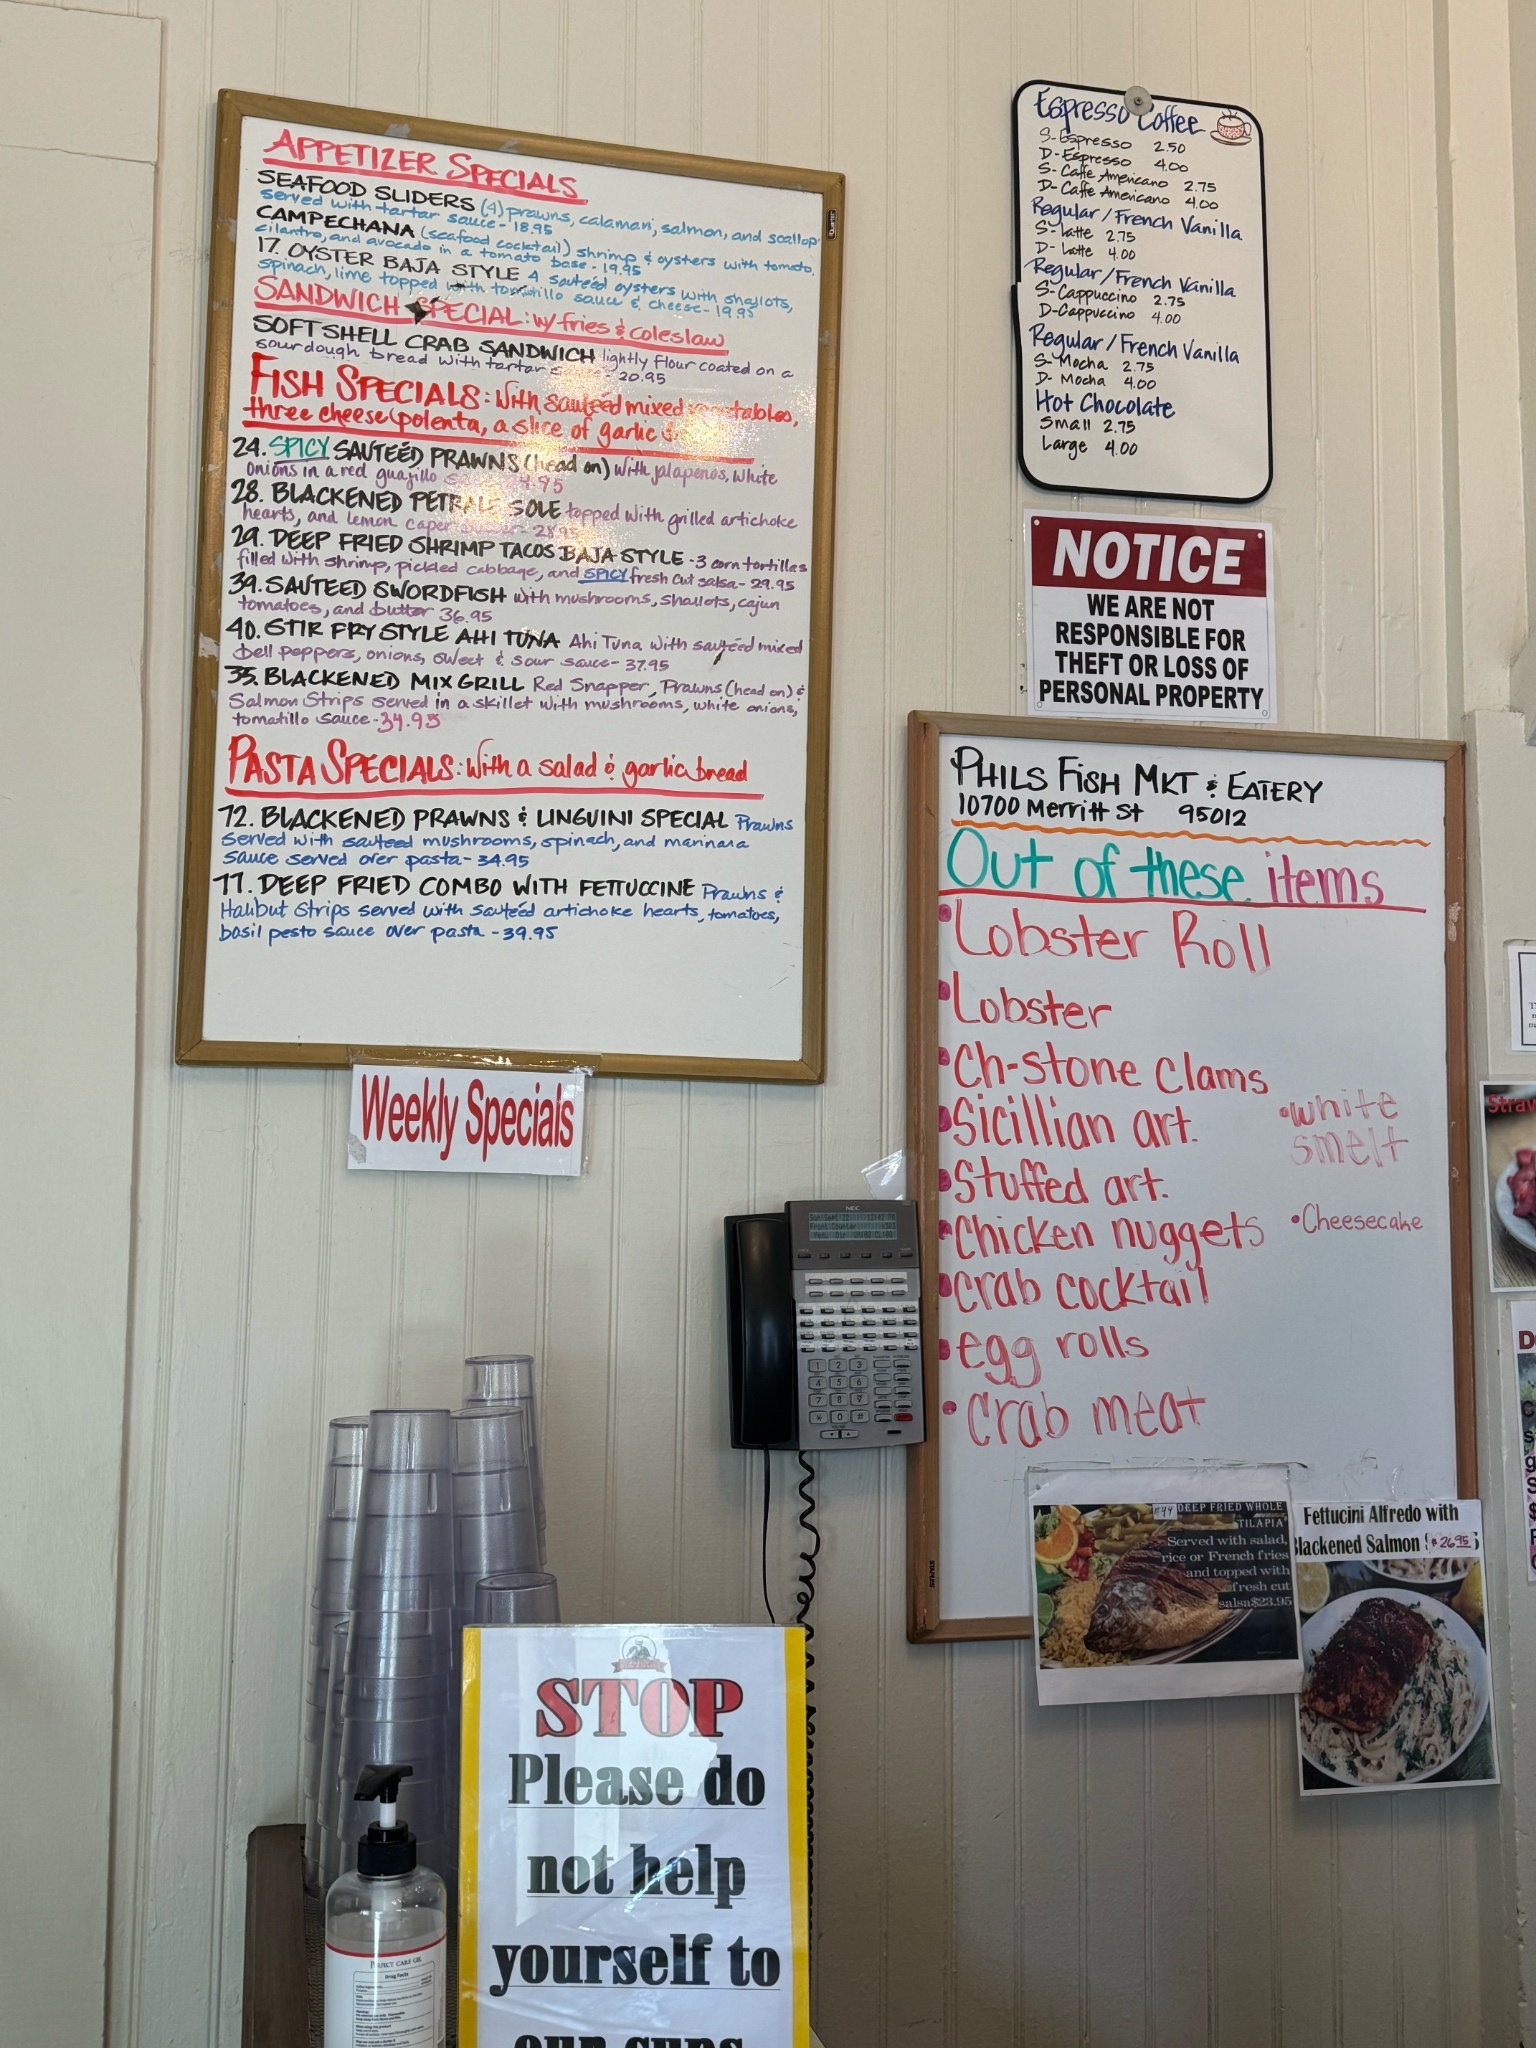 APPETIZER SPECIALS
SEAFOOD SLIDERS (4) prawns, calamari, salmon, and scallop
served with tartar sauce - 18.95
CAMPECHANA (seafood cocktail) shrimp & oysters with tomato,
cilantro, and avocado in a tomato base - 19.95
17. OYSTER BAJA STYLE 4 sautéed oysters with shallots,
spinach, lime topped with tomatillo sauce & cheese - 19.95
SANDWICH SPECIAL: w/ fries & coleslaw
SOFT SHELL CRAB SANDWICH lightly flour coated on a
sourdough bread with tartar 20.95
FISH SPECIALS: With sautéed mixed vegetables,
three cheese polenta, a slice of garlic
24. SPICY SAUTÉED PRAWNS (head on) with jalapenos, white
onions in a red guajillo
28. BLACKENED PETRALE SOLE topped with grilled artichoke
hearts, and lemon caper - 28.95
29. DEEP FRIED SHRIMP TACOS BAJA STYLE - 3 corn tortillas
filled with shrimp, pickled cabbage, and SPICY fresh cut salsa - 29.95
39. SAUTEED SWORDFISH with mushrooms, shallots, cajun
tomatoes, and butter 36.95
40. STIR FRY STYLE AHI TUNA Ahi Tuna with sautéed mixed
bell peppers, onions, sweet & sour sauce - 37.95
35. BLACKENED MIX GRILL Red Snapper, Prawns (head on) &
Salmon Strips served in a skillet with mushrooms, white onions,
tomatillo sauce - 34.95
PASTA SPECIALS: With a salad & garlic bread
72. BLACKENED PRAWNS & LINGUINI SPECIAL Prawns
served with sauteed mushrooms, spinach, and marinara
sauce served over pasta - 34.95
77. DEEP FRIED COMBO WITH FETTUCCINE Prawns &
Halibut Strips served with sautéed artichoke hearts, tomatoes,
basil pesto sauce over pasta - 39.95
Weekly Specials
Espresso Coffee
S- Espresso 2.50
D- Espresso 4.00
S- Caffe Americano 2.75
D- Caffe Americano 4.00
Regular / French Vanilla
S- Latte 2.75
D- Latte 4.00
Regular / French Vanilla
S- Cappuccino 2.75
D- Cappuccino 4.00
Regular / French Vanilla
S- Mocha 2.75
D- Mocha 4.00
Hot Chocolate
Small 2.75
Large 4.00
NOTICE
WE ARE NOT
RESPONSIBLE FOR
THEFT OR LOSS OF
PERSONAL PROPERTY
PHILS FISH MKT & EATERY
10700 Merritt St 95012
Out of these items
• Lobster Roll
• Lobster
• Ch-stone Clams
• Sicillian art.
• white
smelt
• Stuffed art.
• Chicken nuggets
• Cheesecake
• Crab cocktail
• egg rolls
• Crab meat
#44 DEEP FRIED WHOLE
TILAPIA
Served with salad,
rice or French fries
and topped with
fresh cut
salsa $23.95
Fettucini Alfredo with
Blackened Salmon $26.95
NEC
STAPLES
Quartet
STOP
Please do
not help
yourself to
our cups
PERFECT CARE GEL
Drug Facts